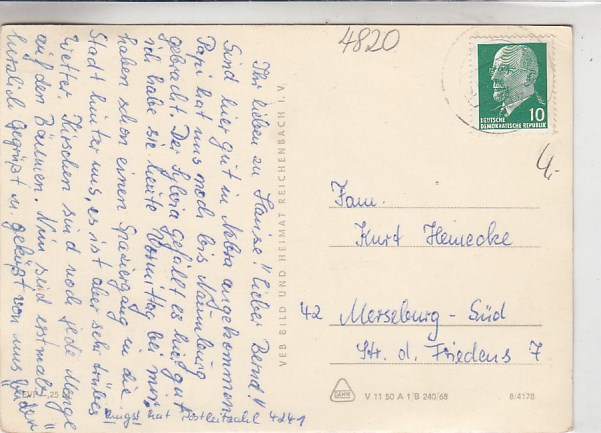 Ihr lieben zu Hause!" Lieber Bernd!
Sind hier gut in Nebra angekommen
Papi hat uns noch bis Naumburg
gebracht. Der Sylvia gefällt es hier gut
ich habe sie heute Vormittag bei mir,
haben schon einen Spaziergang in die
Stadt hinter uns, es ist aber sehr trübes
Wetter. Kirschen sind noch jede Menge
auf den Bäumen. Nun seid erstmal
herzlich gegrüßt u. geküßt von uns beiden
hat Postleitzahl 4241
EVP -,25
VEB BILD UND HEIMAT REICHENBACH I. V.
4820
10
DEUTSCHE
DEMOKRATISCHE REPUBLIK
4,-
Fam.
Kurt Heinecke
42 Merseburg - Süd
Str. d. Friedens 7
V 11 50 A 1 B 240/68
8/4178